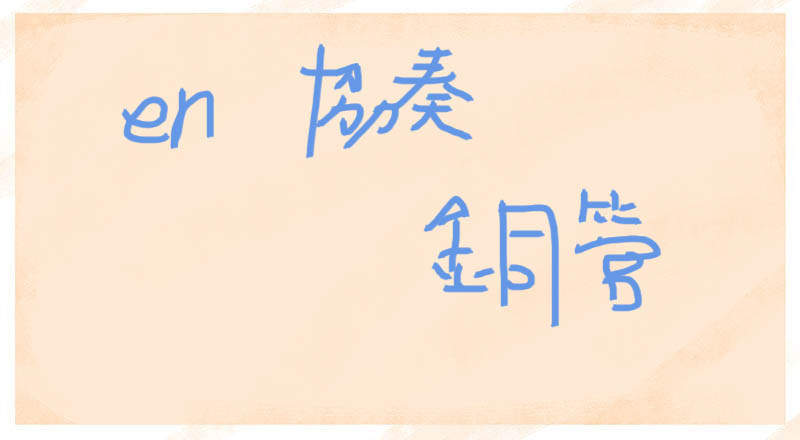 en 協奏
銅管